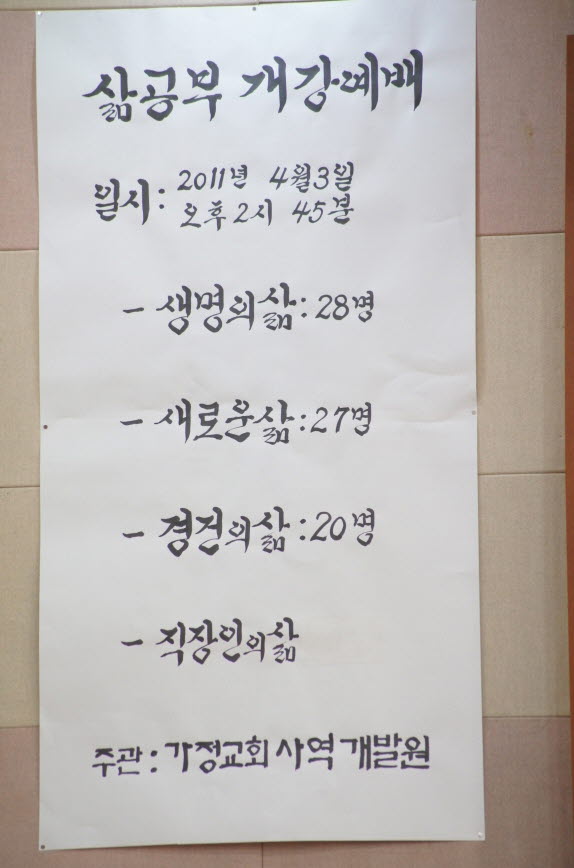 삶공부 개강예배
일시: 2011년 4월3일
오후 2시 45분
- 생명의삶: 28명
- 새로운삶: 27명
- 경건의삶: 20명
- 직장인의삶
주관: 가정교회 사역 개발원